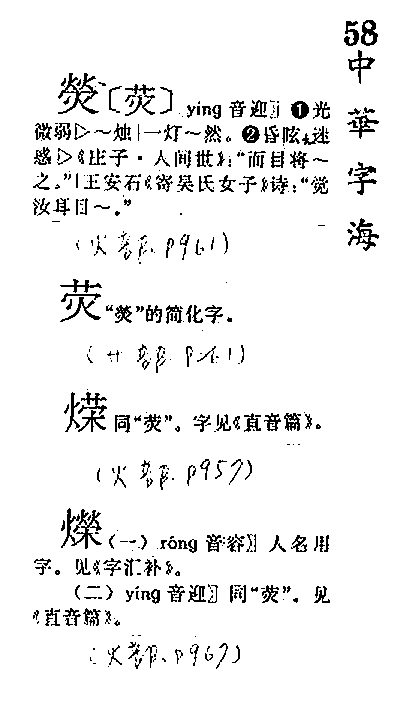 58
中華字海
熒〔荧〕yíng 音迎〛❶光
微弱▷～烛|一灯～然。❷昏眩,迷
惑▷《庄子·人间世》:“而目将～
之。”|王安石《寄吴氏女子》诗:“觉
汝耳目～。”
(火部. p961)
荧 “熒”的简化字。
(艹部. p261)
㷨 同“荧”。字见《直音篇》。
(火部 p957)
爃(一) róng 音容〛人名用
字。见《字汇补》。
(二) yíng 音迎〛同“荧”。见
《直音篇》。
(火部. p967)